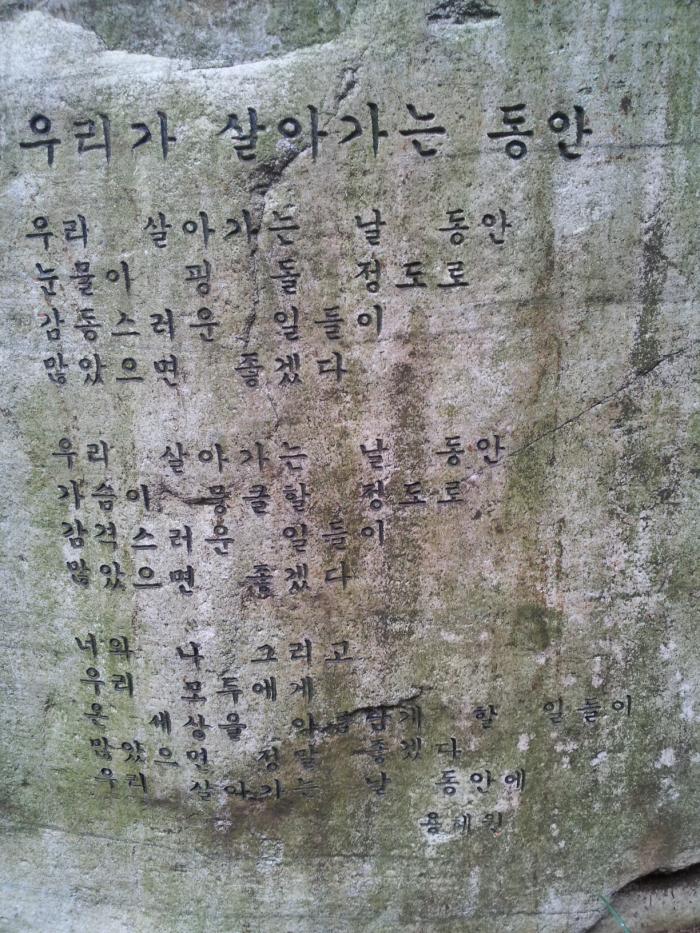 우리가 살아가는 동안
우리 살아가는 날 동안
눈물이 핑 돌 정도로
감동스러운 일들이
많았으면 좋겠다
우리 살아가는 날 동안
가슴이 뭉클할 정도로
감격스러운 일들이
많았으면 좋겠다
너와 나 그리고
우리 모두에게
온 세상을 아름답게 할 일들이
많았으면 정말 좋겠다
우리 살아가는 날 동안에
용혜원